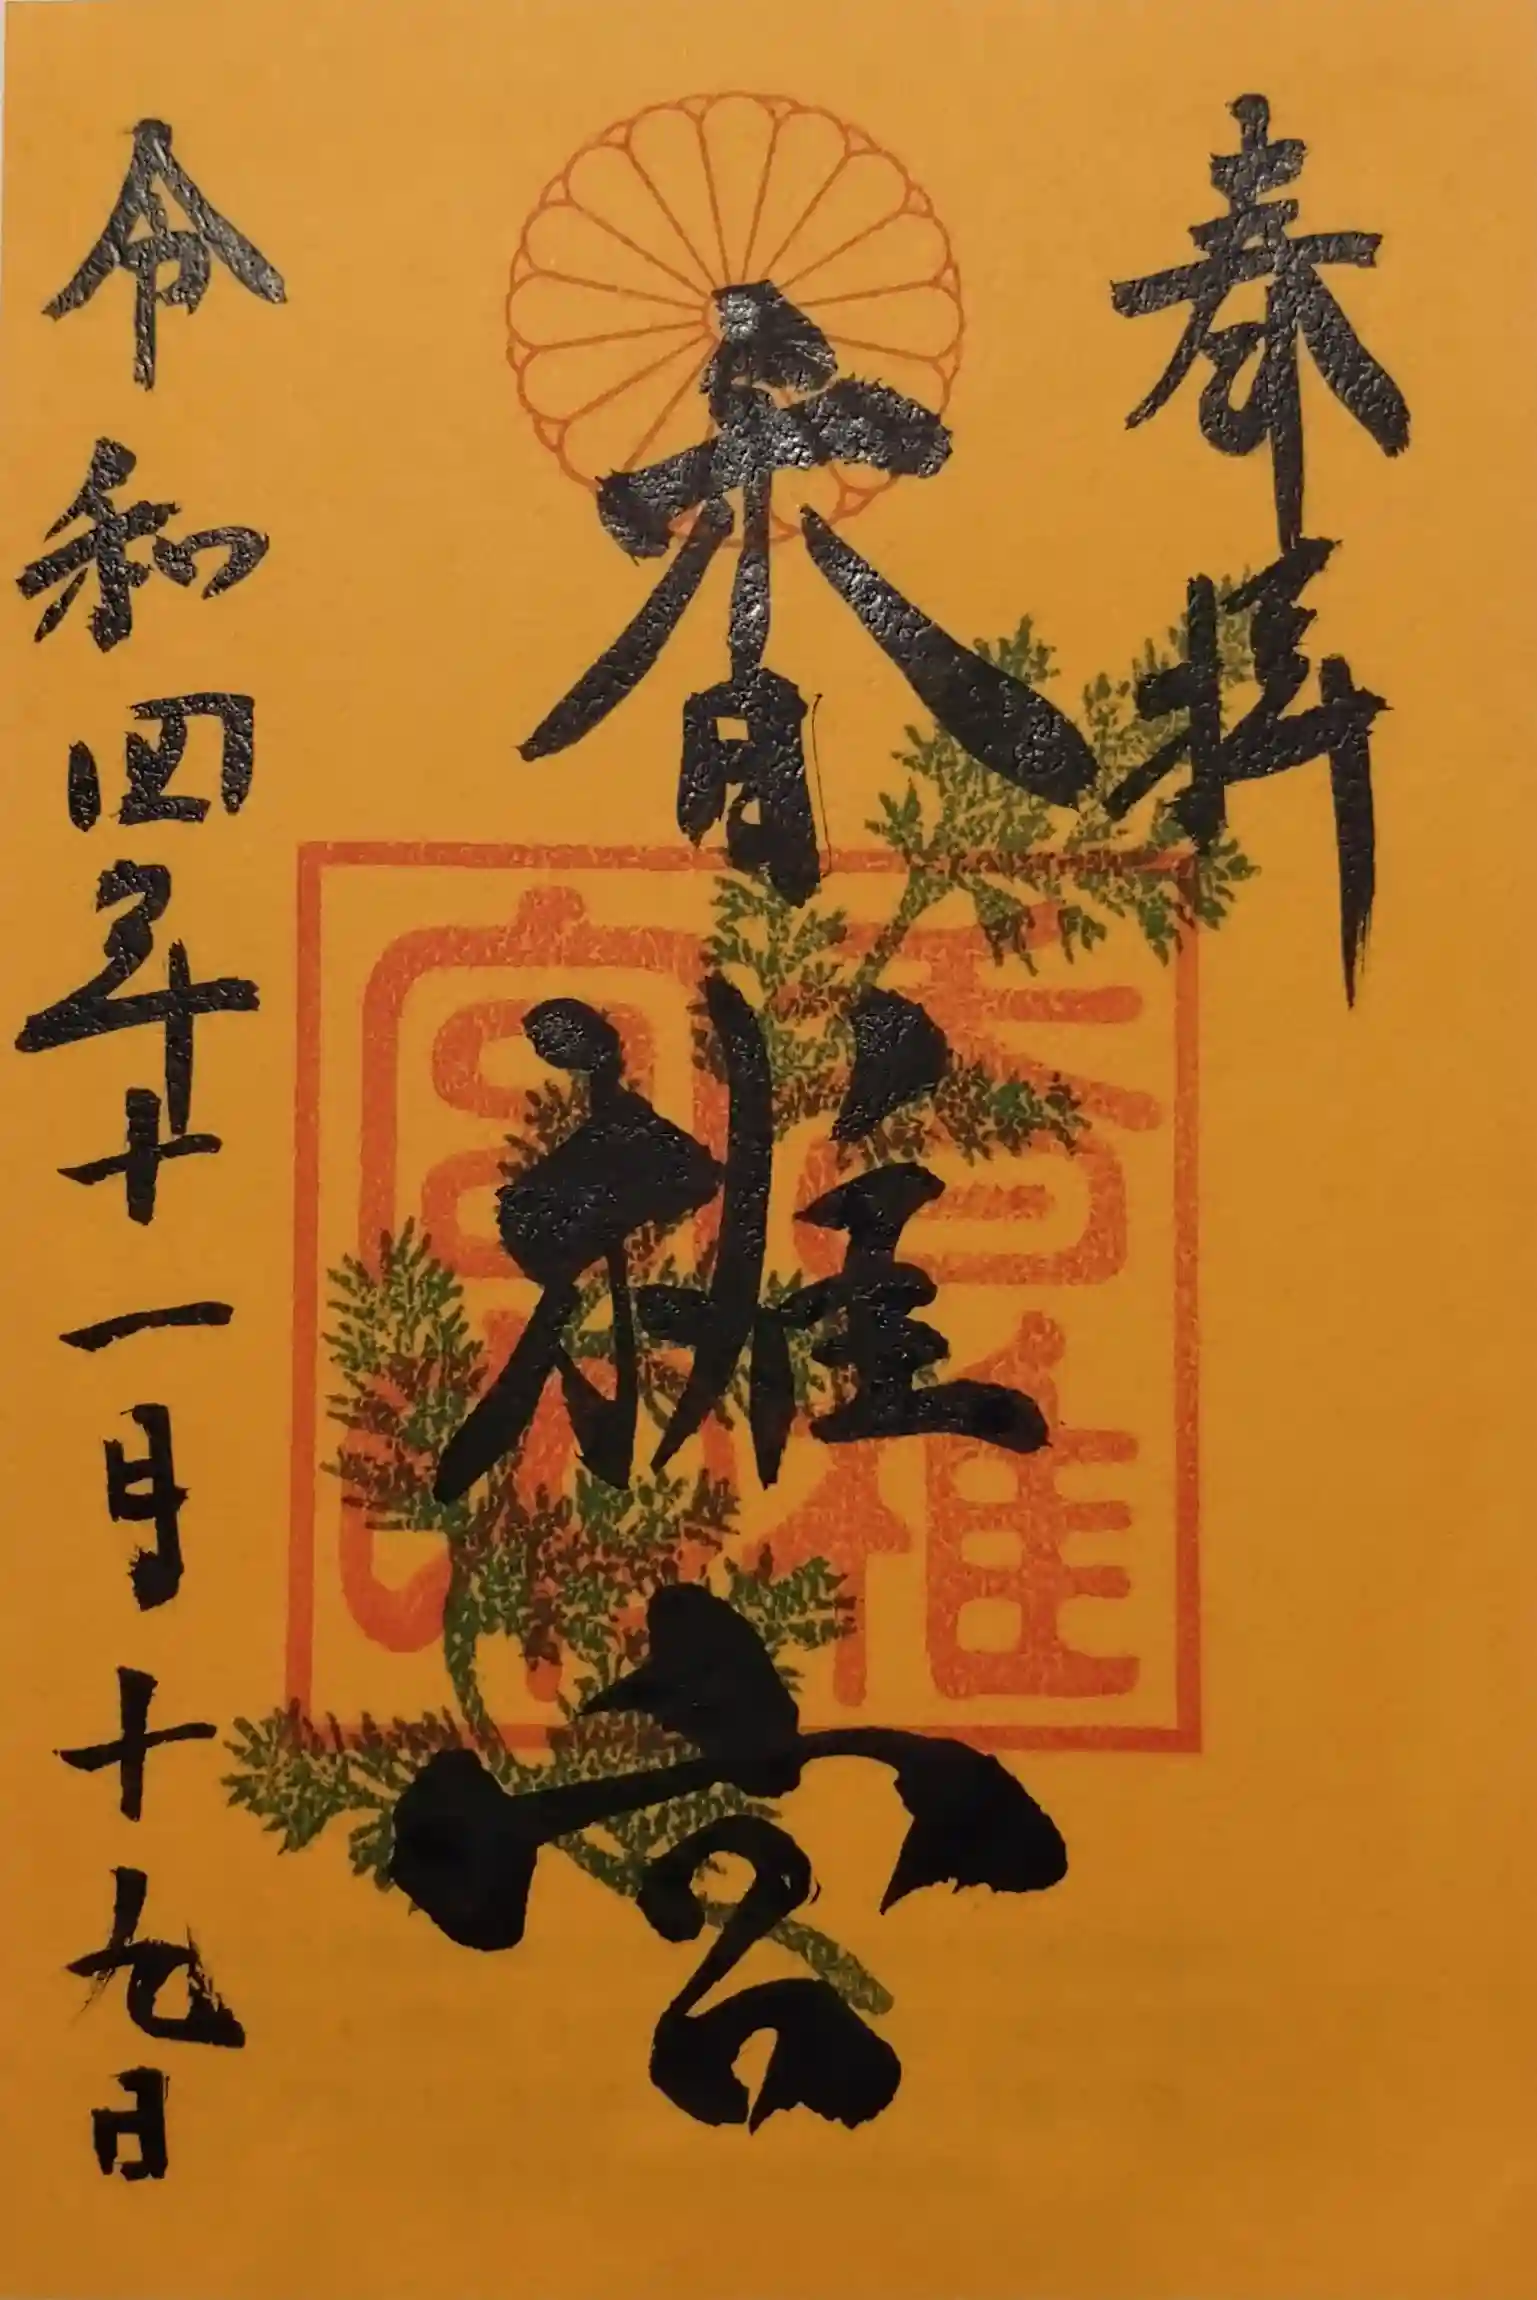 奉拝
香椎宮
香椎宮印
令和四年十一月十九日